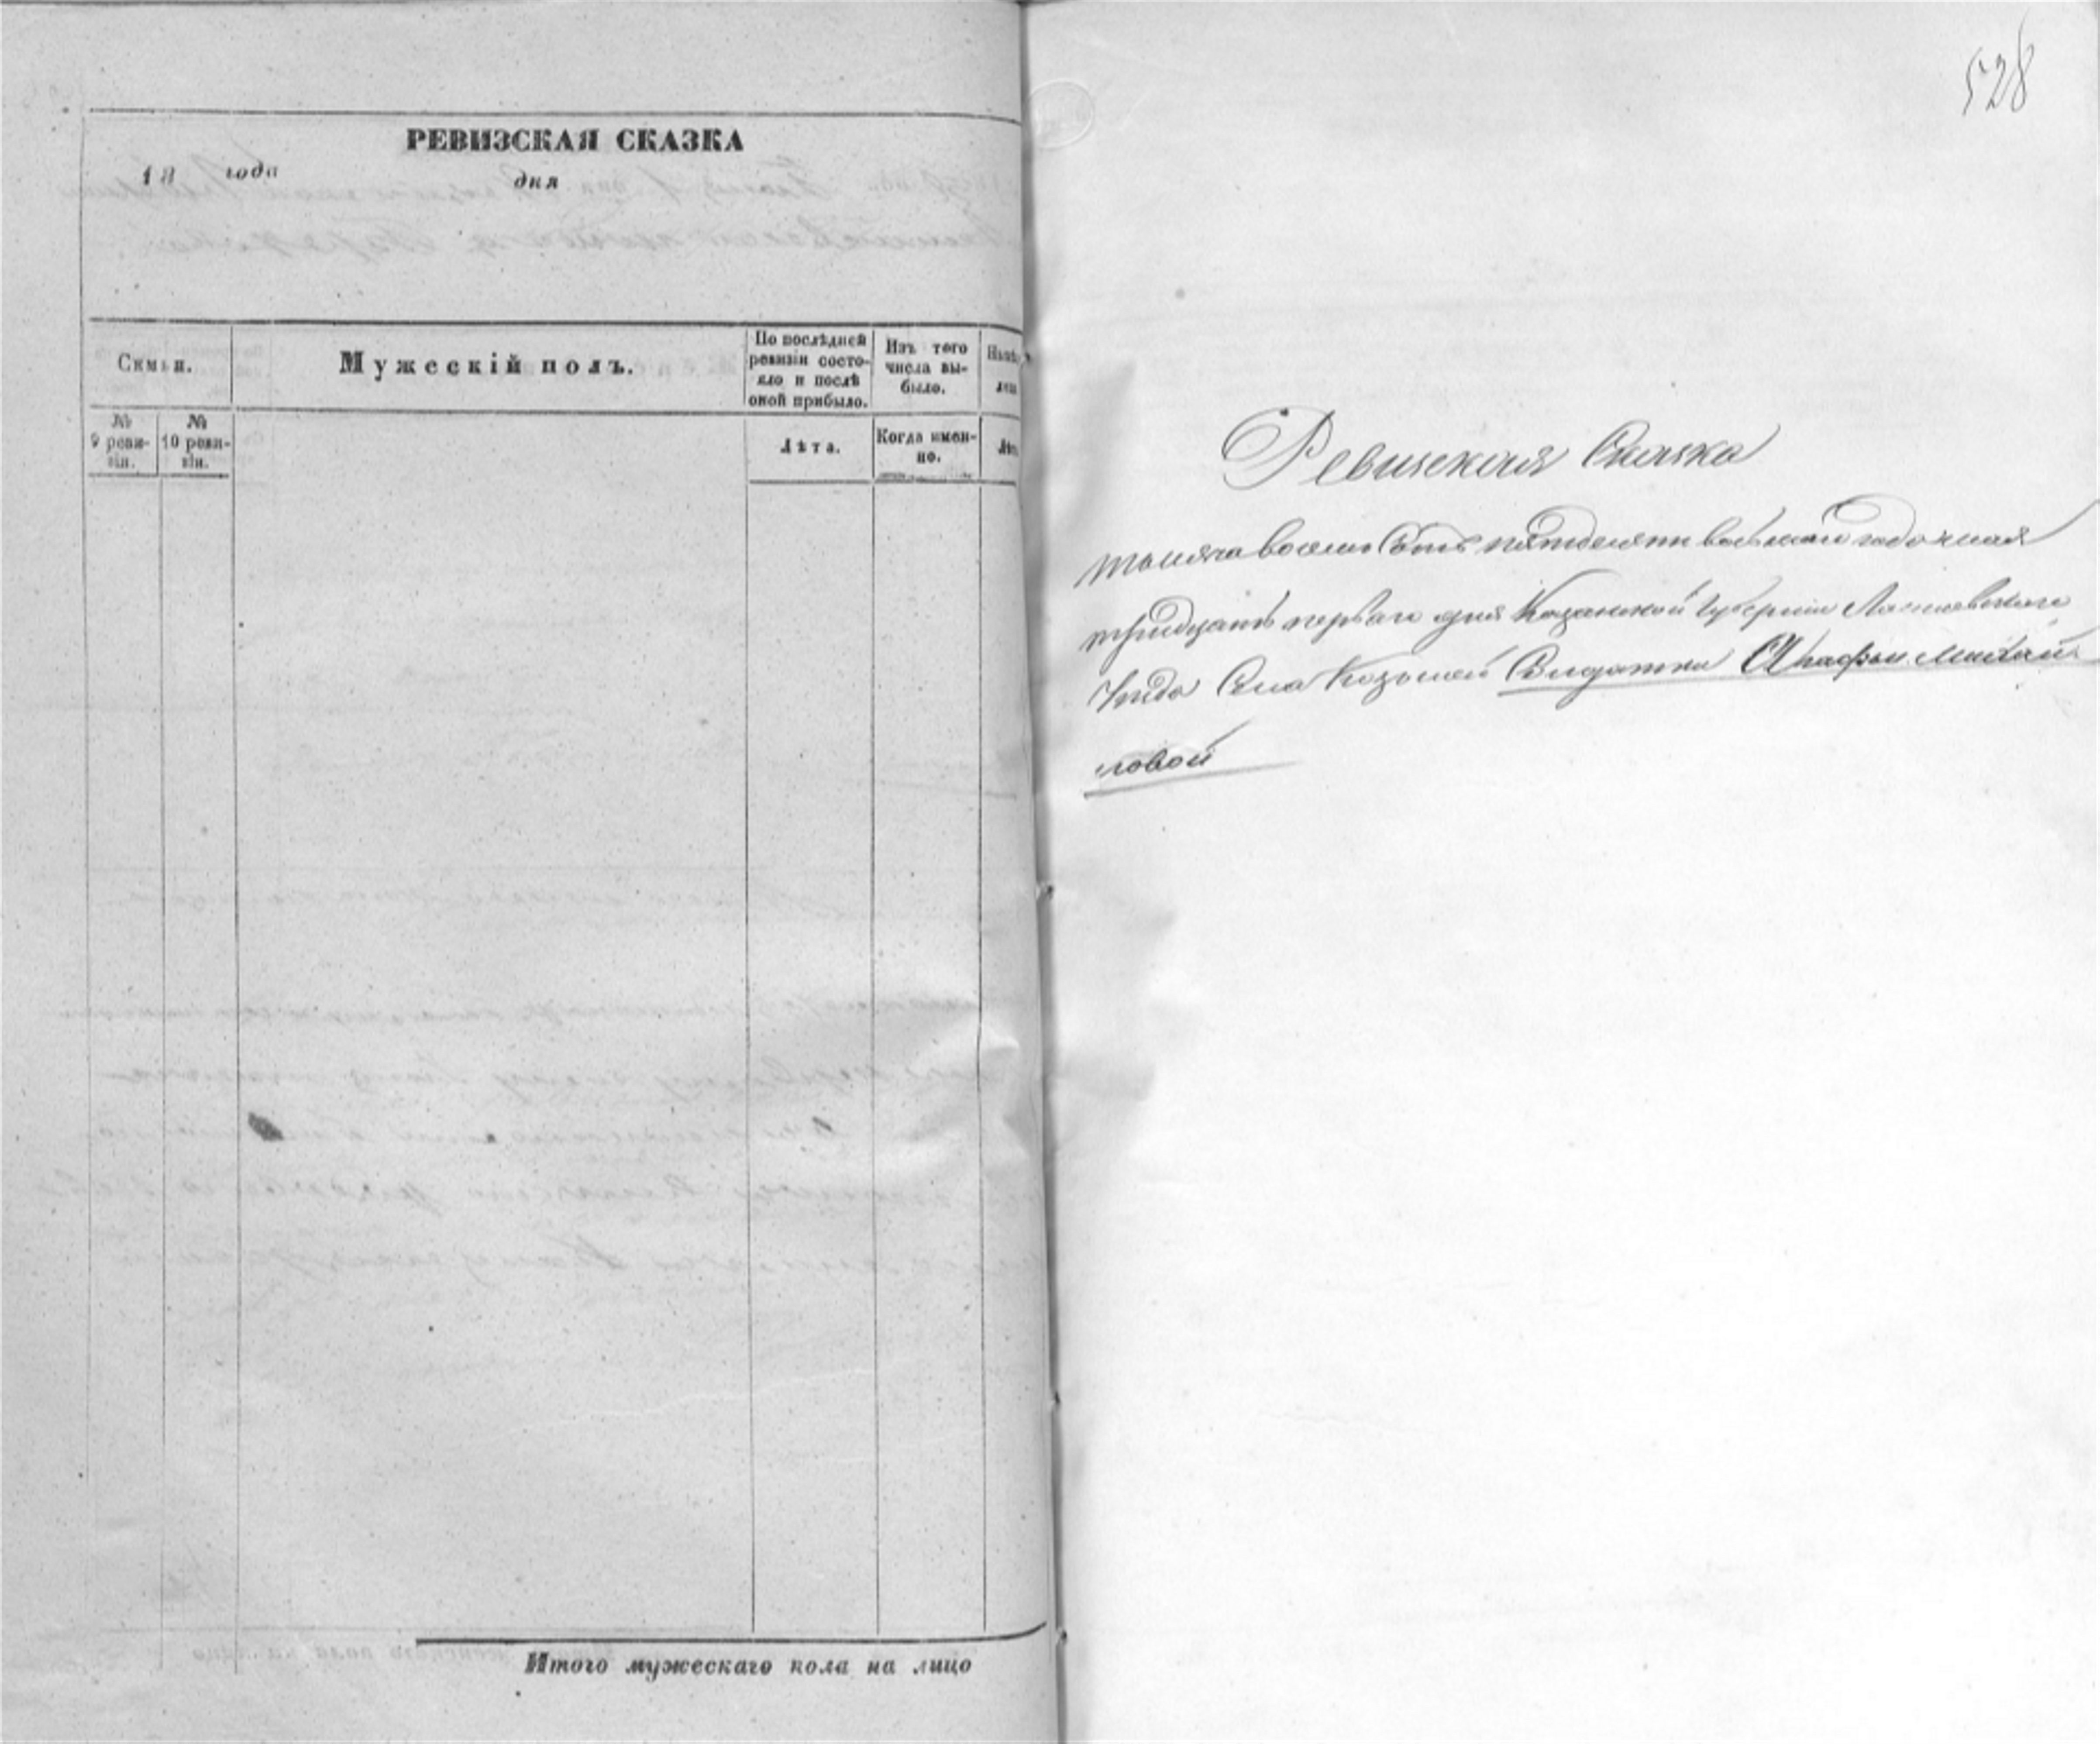 РЕВИЗСКАЯ СКАЗКА
18 года дня
Семьи.
Мужескій полъ.
По послѣдней ревизіи состояло и послѣ оной прибыло.
Изъ того числа выбыло.
№ 9 ревизіи.
№ 10 ревизіи.
Лѣта.
Когда именно.
Итого мужескаго пола на лицо
528
Ревизская Сказка
тысяча восемь сотъ пятдесятъ восьмаго года мая
тридцать перваго дня Казанской Губерніи Лаишевскаго
Уѣзда Села Козьмей Солдатки Михай
ловой